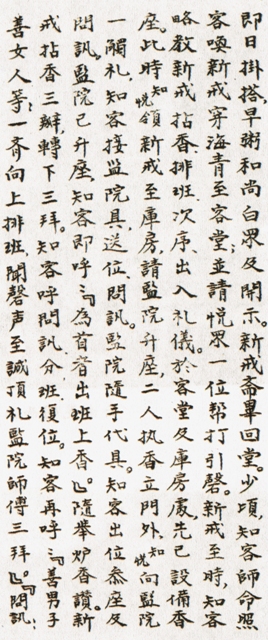 即日掛搭,早粥和尚白眾及開示。新戒斋畢回堂。少頃,知客師命照
客喚新戒穿海青至客堂;並請悦眾一位帮打引磬。新戒至時,知客
略教新戒拈香、排班、次序、出入礼儀。於客堂及庫房處,先已設備香
座。此時知悦領新戒至庫房,請監院升座,二人执香立門外,知悦向監院
一觸礼,知客接监院具,送位、問訊。监院隨手代具。知客出位叅座及
問訊。監院已升座,知客即呼:『為首者出班上香』。隨舉炉香讚。新
戒拈香三瓣,轉下三拜。知客呼問訊,分班,復位。知客再呼:『善男子
善女人等;一齊向上排班,聞磬声至誠頂礼監院師傅三拜』。『問訊;